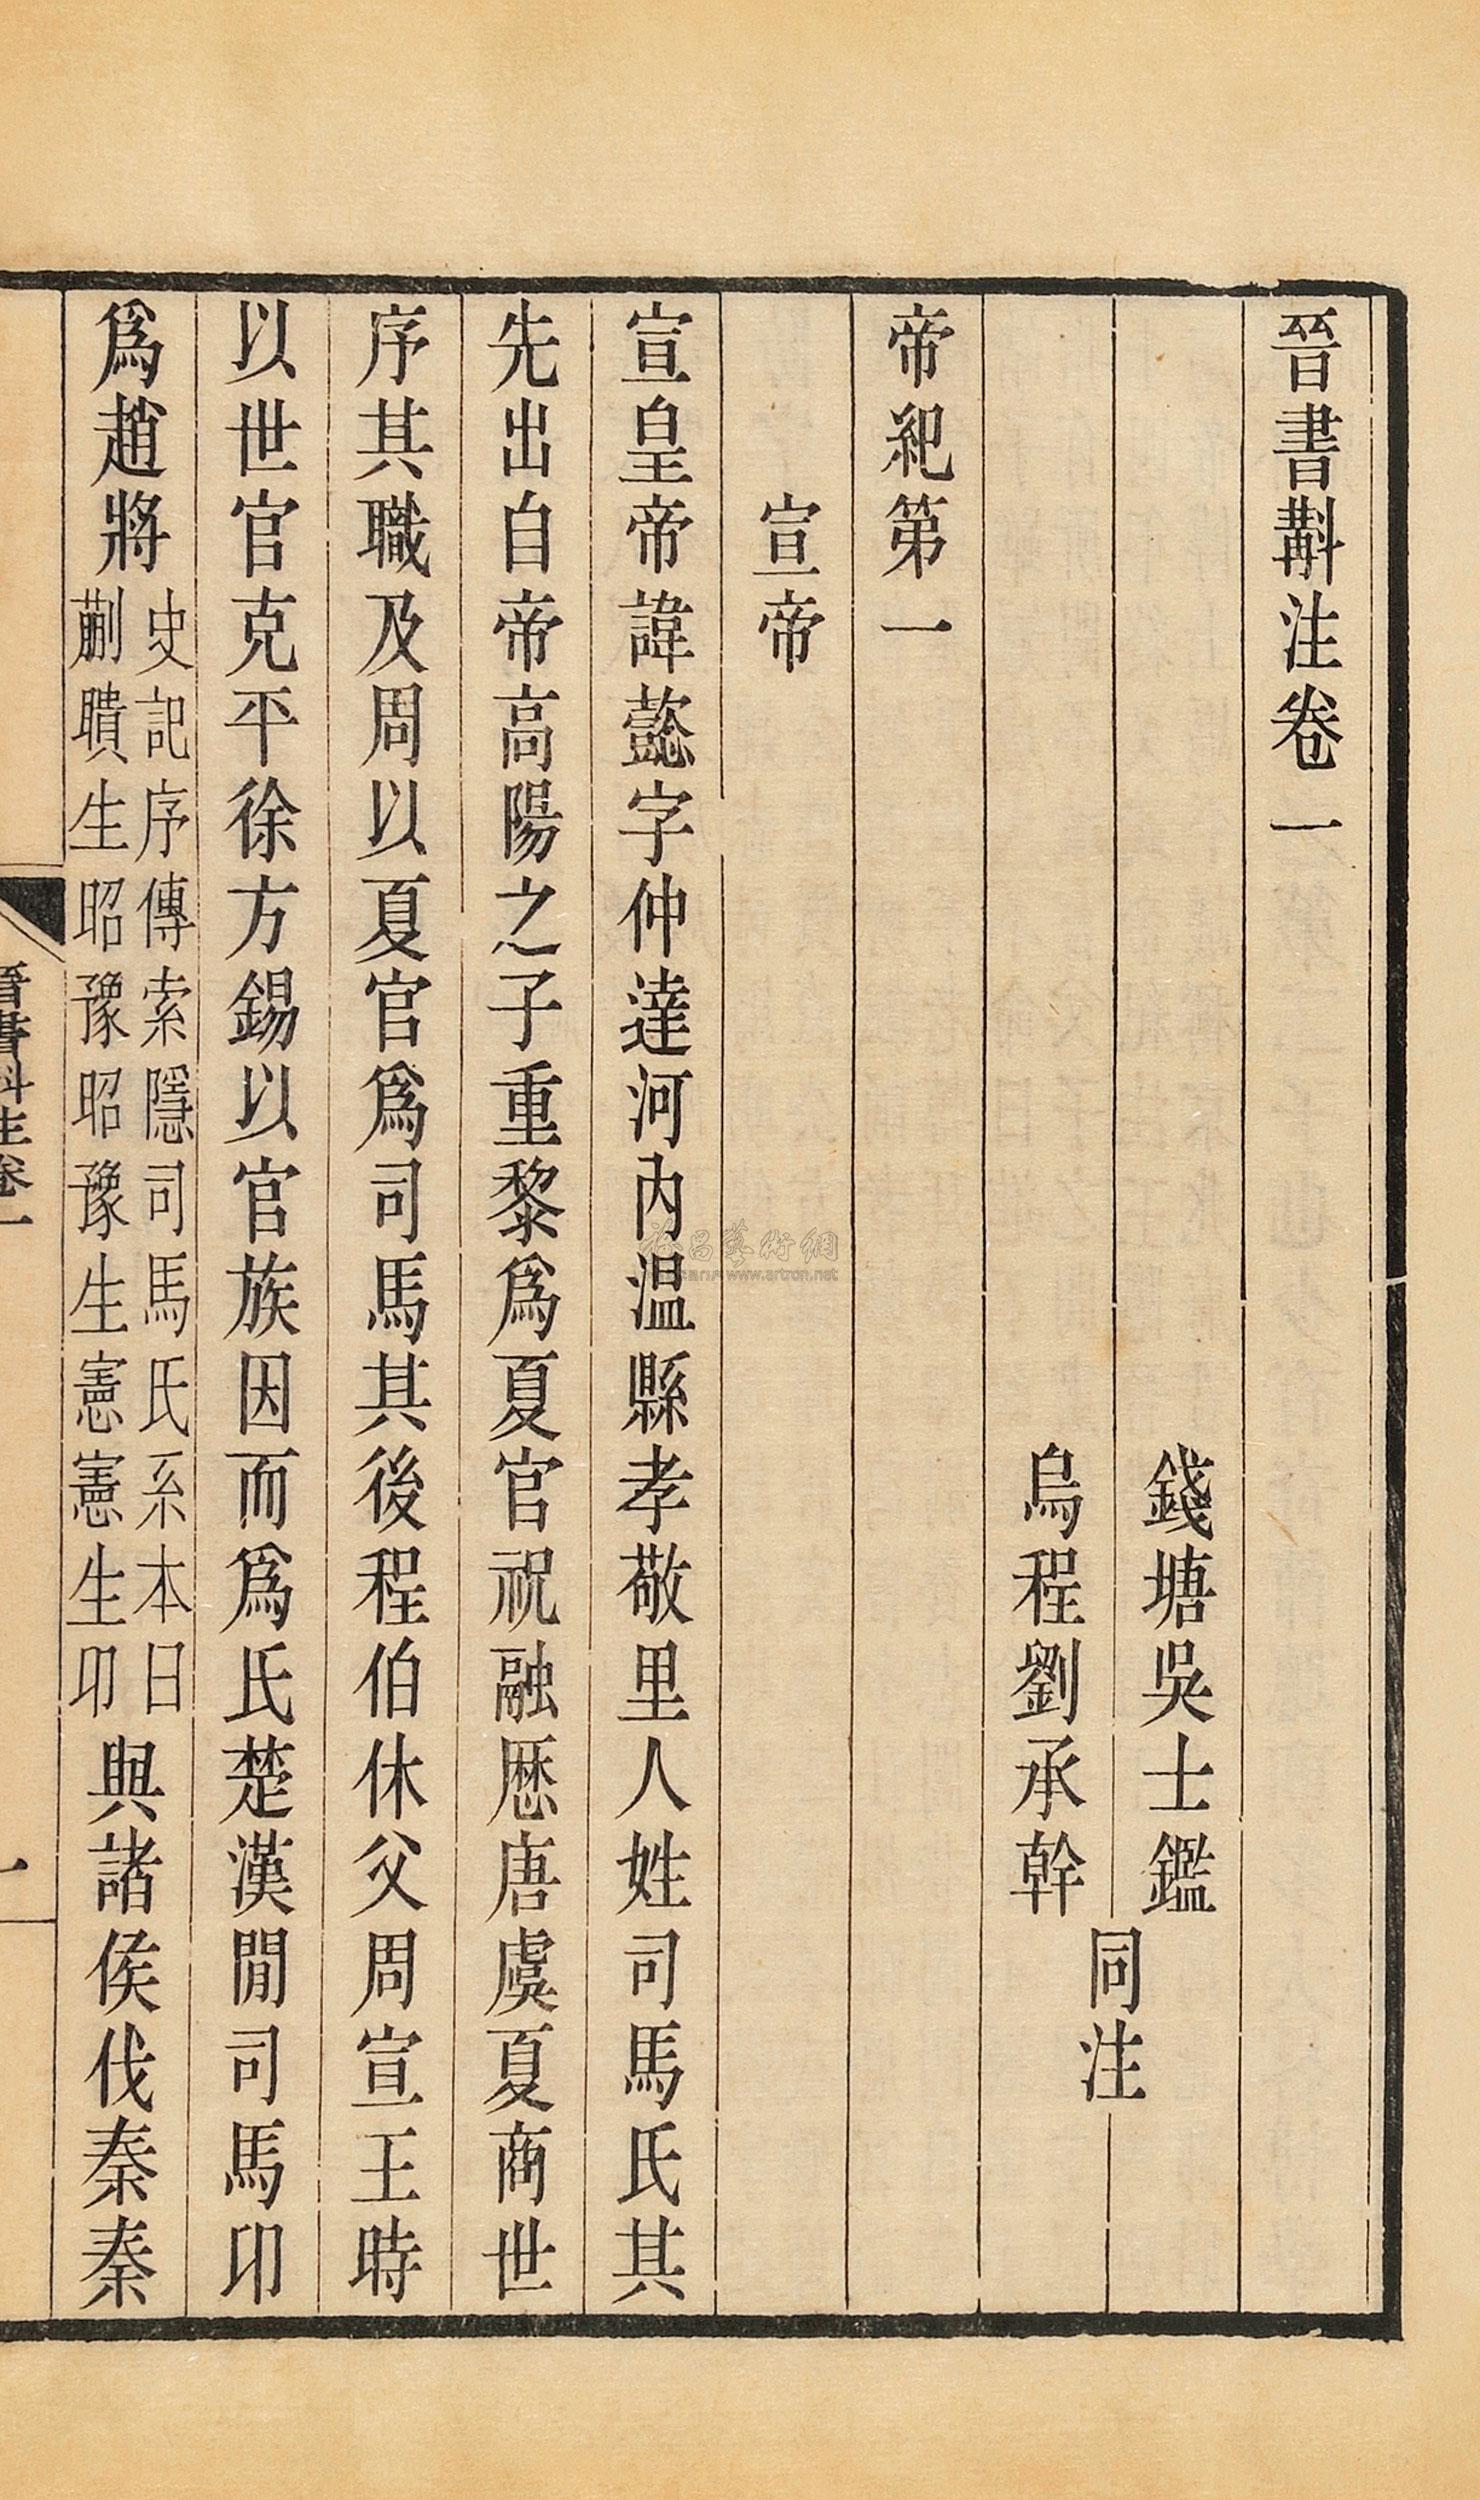 晉書斠注卷一
錢塘吳士鑑
烏程劉承幹
同注
帝紀第一
宣帝
宣皇帝諱懿字仲達河內温縣孝敬里人姓司馬氏其
先出自帝高陽之子重黎爲夏官祝融歷唐虞夏商世
序其職及周以夏官爲司馬其後程伯休父周宣王時
以世官克平徐方錫以官族因而爲氏楚漢閒司馬卬
爲趙將
史記序傳索隱司馬氏系本曰
蒯聵生昭豫昭豫生憲憲生卬
與諸侯伐秦秦
晉書斠注卷一
一
www.artron.net